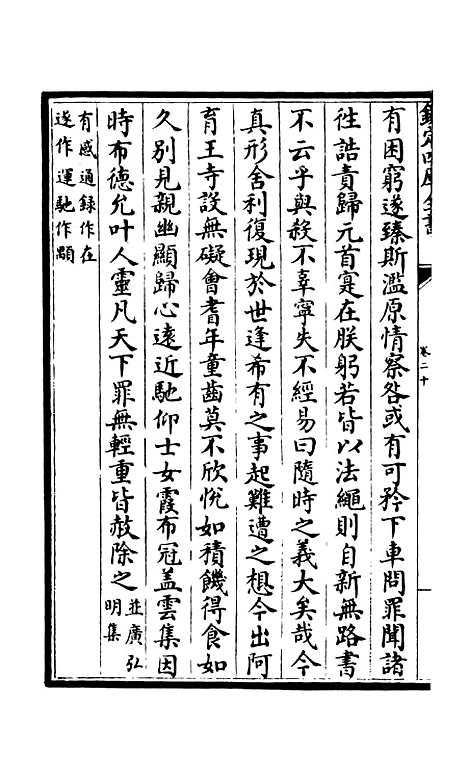 欽定四庫全書
卷二十
有困窮遂臻斯濫原情察咎或有可矜下車問罪聞諸
徃誥責歸元首寔在朕躬若皆以法繩則自新無路書
不云乎與殺不辜寧失不經易曰隨時之義大矣哉今
真形舍利復現於世逢希有之事起難遭之想今出阿
育王寺設無礙會耆年童齒莫不欣悅如積饑得食如
久别見親幽顯歸心遠近馳仰士女霞布冠盖雲集因
時布德允叶人靈凡天下罪無輕重皆赦除之並廣弘
明集
有感通録作在
遂作運馳作顒